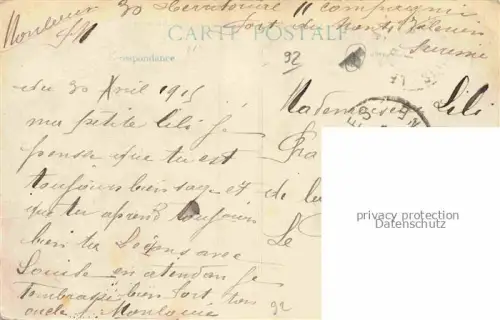 30 Territorial 11 compagnie
Monlouis Fort du Mont Valérien
CARTE POSTALE Suresne
Correspondance
92
du 30 Avril 1915
Mademoiselle Lili
ma petite lili je
pense que tu est
toujours bien sage et
que tu aprend toujours
bien tes Leçons avec
Louise en atendan je
tembrasse bien fort ton
oncle Monlouis
de la
Le
92
privacy protection
Datenschutz